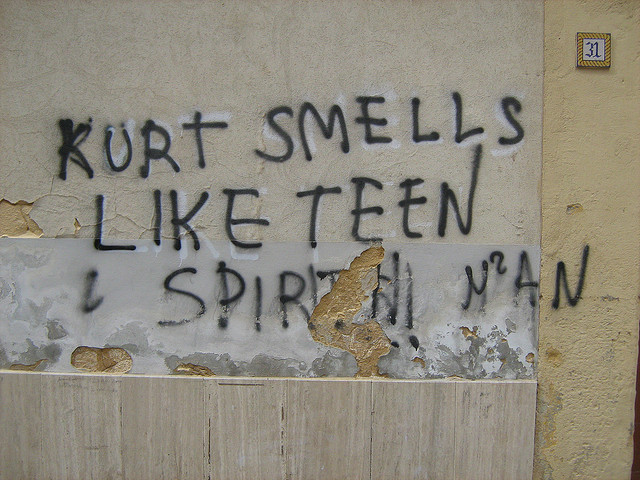 31
KURT SMELLS
LIKE TEEN
SPIRIT